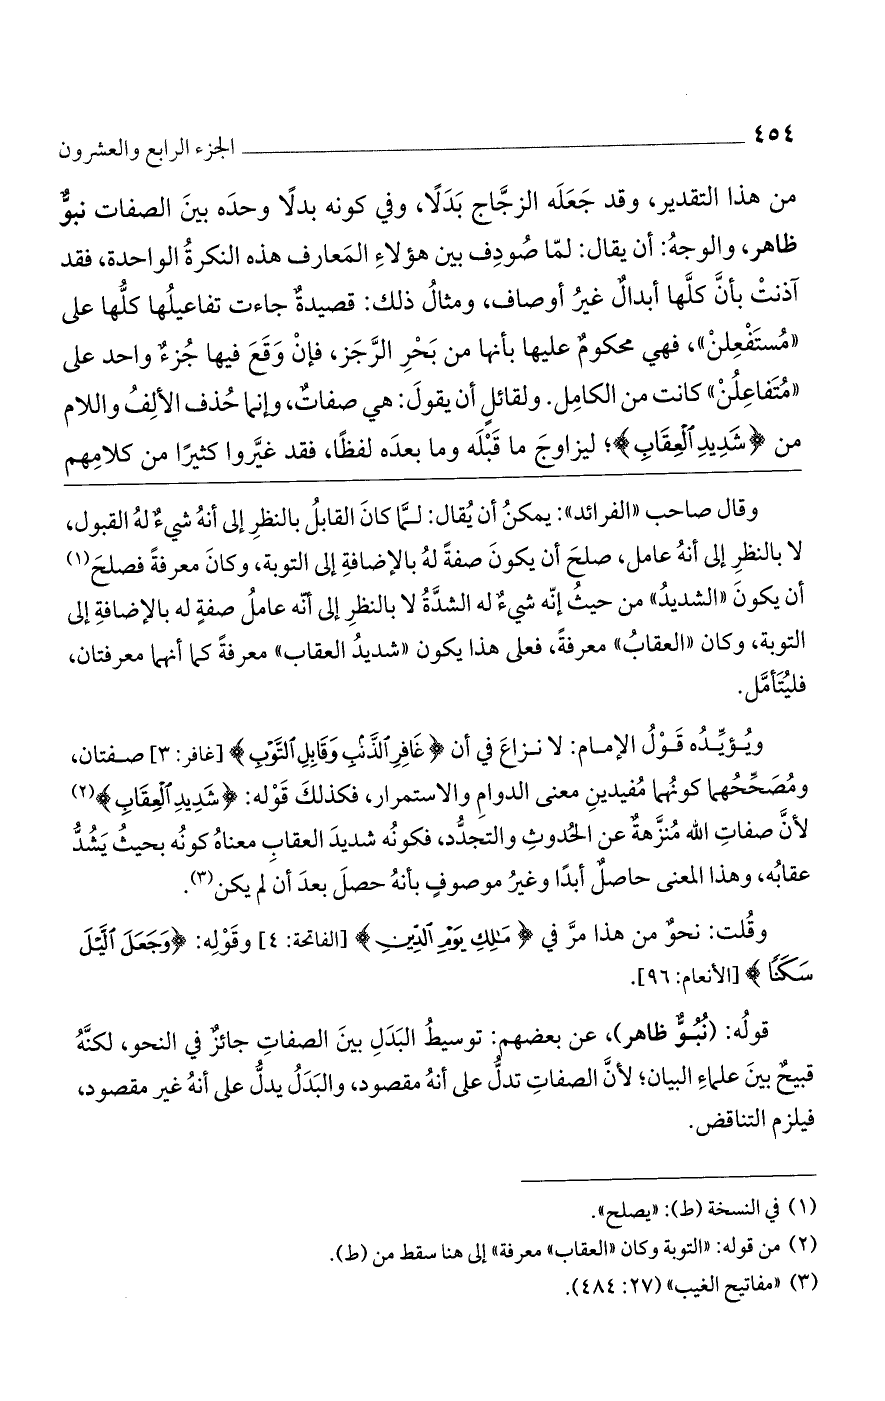 ٤٥٤ ــــــــــــــــــــ الجزء الرابع والعشرون
من هذا التقدير، وقد جَعَلَه الزجَّاج بَدَلًا، وفي كونه بدلًا وحدَه بينَ الصفات نبوٌّ
ظاهر، والوجهُ: أن يقال: لمّا صُودِف بين هؤلاءِ المَعارف هذه النكرةُ الواحدة، فقد
آذنتْ بأنَّ كلَّها أبدالٌ غيرُ أوصاف، ومثالُ ذلك: قصيدةٌ جاءت تفاعيلُها كلُّها على
«مُستَفْعِلنْ»، فهي محكومٌ عليها بأنها من بَحْرِ الرَّجَز، فإنْ وَقَعَ فيها جُزءٌ واحد على
«مُتَفاعِلُنْ» كانت من الكامِل. ولقائلٍ أن يقولَ: هي صفاتٌ، وإنما حُذف الألِفُ واللام
من ﴿شَدِيدِ ٱلْعِقَابِ﴾؛ ليزاوجَ ما قَبْلَه وما بعدَه لفظًا، فقد غيَّروا كثيرًا من كلامِهم
وقال صاحب «الفرائد»: يمكنُ أن يُقال: لـمَّا كانَ القابلُ بالنظرِ إلى أنهُ شيءٌ لهُ القبول،
لا بالنظرِ إلى أنهُ عامل، صلحَ أن يكونَ صفةً لهُ بالإضافةِ إلى التوبة، وكانَ معرفةً فصلحَ(١)
أن يكونَ «الشديدُ» من حيثُ إنّه شيءٌ له الشدَّةُ لا بالنظرِ إلى أنّه عاملُ صفةٍ له بالإضافةِ إلى
التوبة، وكان «العقابُ» معرفةً، فعلى هذا يكون «شديدُ العقاب» معرفةً كما أنهما معرفتان،
فليُتَأمَّل.
ويُـؤيِّـدُه قَـوْلُ الإمـام: لا نـزاعَ في أن ﴿غَافِرِ ٱلذَّنۢبِ وَقَابِلِ ٱلتَّوْبِ﴾ [غافر: ٣] صـفتان،
ومُصَحِّحُهما كونُهما مُفيدينِ معنى الدوامِ والاستمرار، فكذلكَ قَوْله: ﴿شَدِيدِ ٱلْعِقَابِ﴾(٢)
لأنَّ صفاتِ الله مُنزَّهةٌ عن الحُدوثِ والتجدُّد، فكونُه شديدَ العقابِ معناهُ كونُه بحيثُ يَشُدُّ
عقابُه، وهذا المعنى حاصلٌ أبدًا وغيرُ موصوفٍ بأنهُ حصلَ بعدَ أن لم يكن(٣).
وقُلت: نحوٌ من هذا مرَّ في ﴿مَـٰلِكِ يَوْمِ ٱلدِّينِ﴾ [الفاتحة: ٤] وقَوْلِه: ﴿وَجَعَلَ ٱلَّيْلَ
سَكَنًا﴾ [الأنعام: ٩٦].
قولُه: (نُبُوٌّ ظاهر)، عن بعضهم: توسيطُ البَدَلِ بينَ الصفاتِ جائزٌ في النحو، لكنَّهُ
قبيحٌ بينَ علماءِ البيان؛ لأنَّ الصفاتِ تدلُّ على أنهُ مقصود، والبَدَلُ يدلُّ على أنهُ غير مقصود،
فيلزم التناقض.
(١) في النسخة (ط): «يصلح».
(٢) من قوله: «التوبة وكان «العقاب» معرفة» إلى هنا سقط من (ط).
(٣) «مفاتيح الغيب» (٢٧: ٤٨٤).